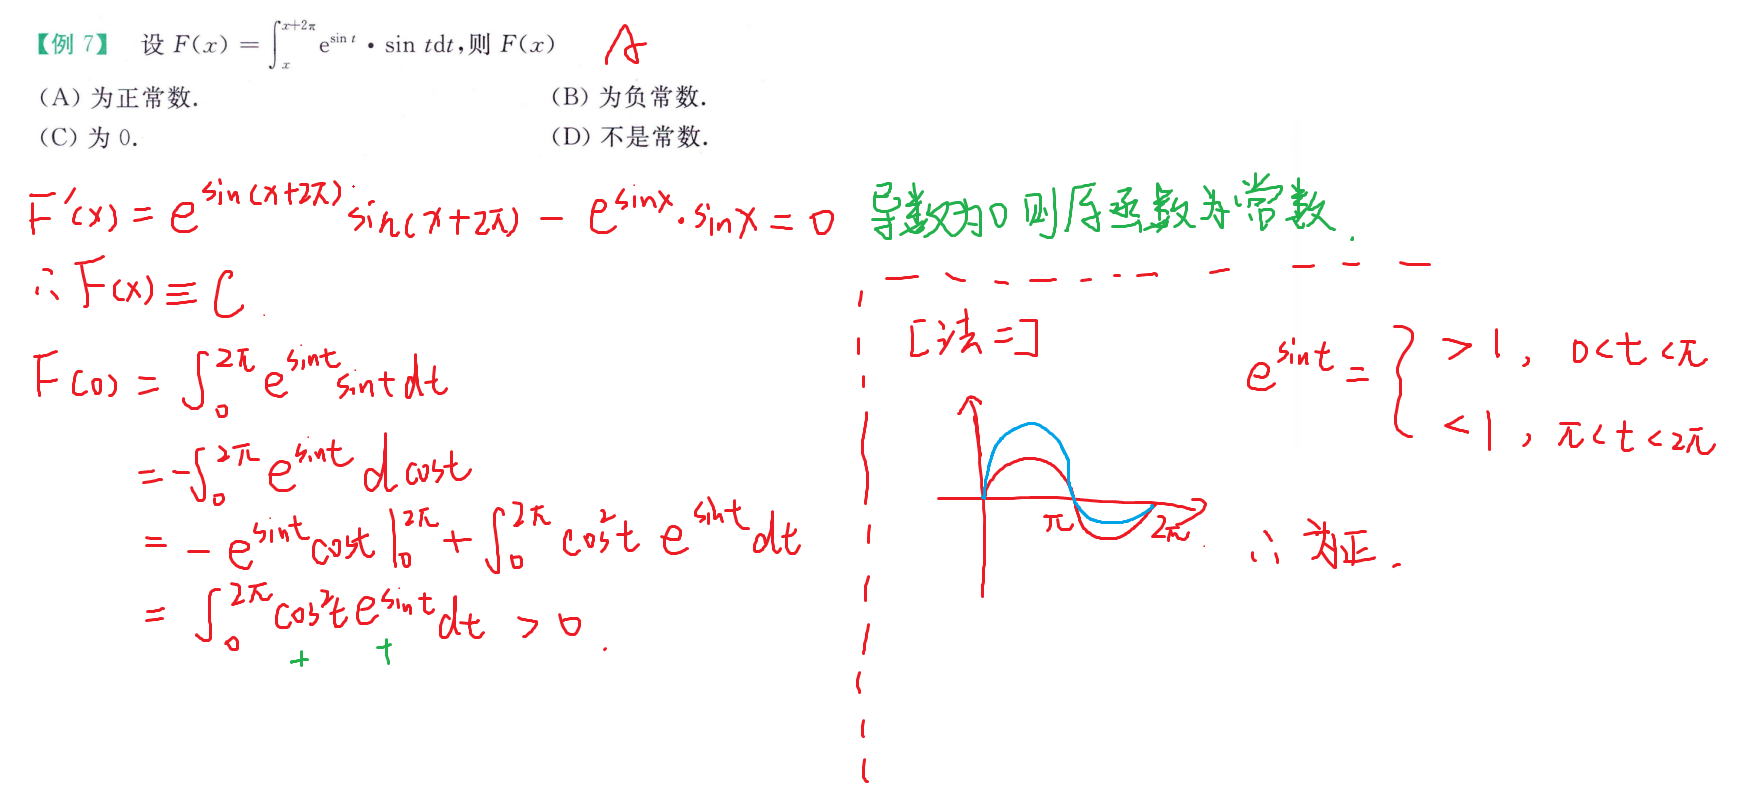 【例 7】 设 F(x) = ∫_x^{x+2π} e^{sin t} · sin tdt,则 F(x) A
(A) 为正常数. (B) 为负常数.
(C) 为 0. (D) 不是常数.
F'(x) = e^{sin(x+2π)} sin(x+2π) - e^{sinx}·sinx = 0 导数为0则原函数为常数.
∴ F(x) ≡ C.
F(0) = ∫_0^{2π} e^{sint} sint dt
= -∫_0^{2π} e^{sint} d cost
= - e^{sint} cost |_0^{2π} + ∫_0^{2π} cos²t e^{sint} dt
= ∫_0^{2π} cos²t e^{sint} dt > 0.
+ +
[法二]
e^{sint} = { >1, 0<t<π
<1, π<t<2π
π 2π
∴ 为正.